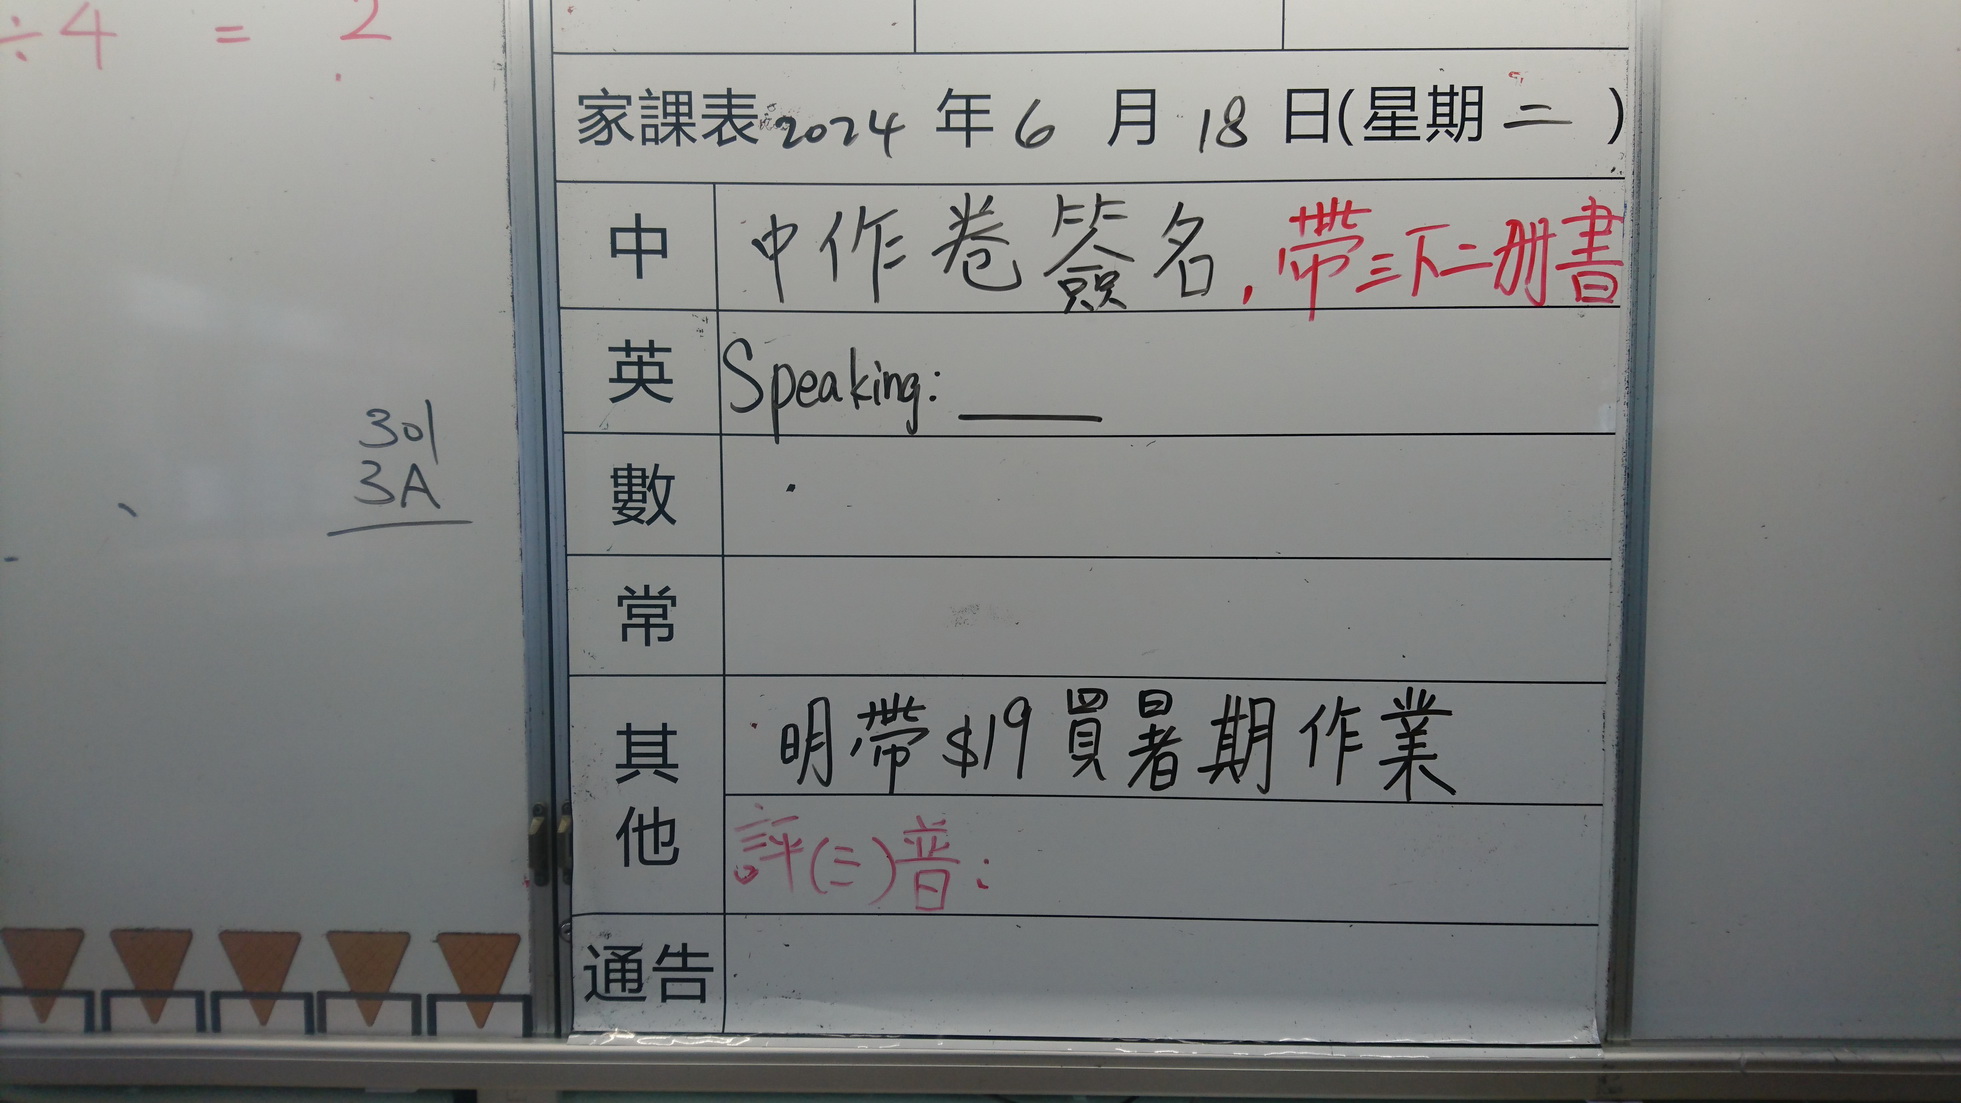 ÷4 = 2
家課表 2024 年 6 月 18 日(星期 二 )
中 中作卷簽名, 帶三下二册書
英 Speaking: ____
301
3A
數
常
其他 明帶$19買暑期作業
評(三)普:
通告